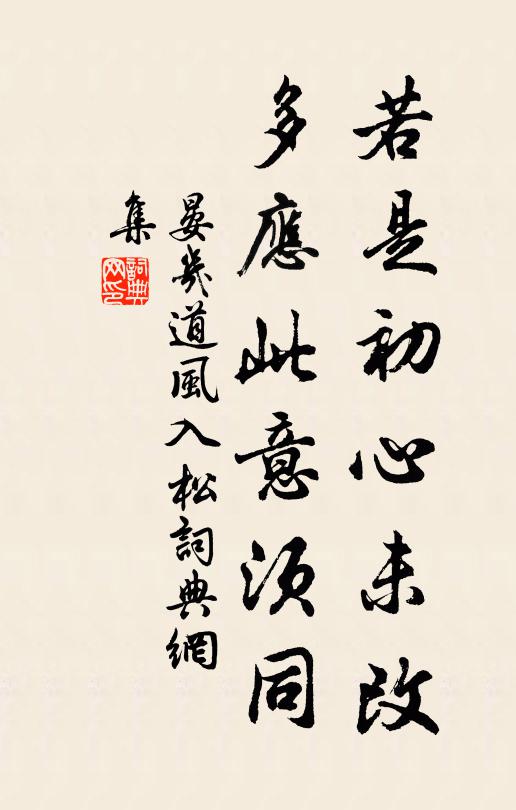 若是初心未改
多應此意須同
晏幾道風入松詞典網
集
詞典
网印